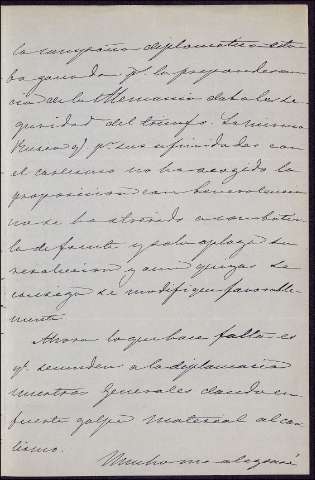 la campaña diplomatica esta
ba ganada pr. la preponderan
cia de la Alemania daba la se
guridad del triunfo. La misma
Rusia q. pr. sus afinidades con
el carlismo no ha acogido la
proposicion con benevolencia
no se ha atrevido a combatir
la de frente y solo aplazó su
resolucion y aun quizas se
consiga se modifique favorable-
mente.
Ahora lo que hace falta es
q. secunden a la diplomacia
nuestros Generales dando un
fuerte golpe material al car
lismo.
Mucho me alegraré